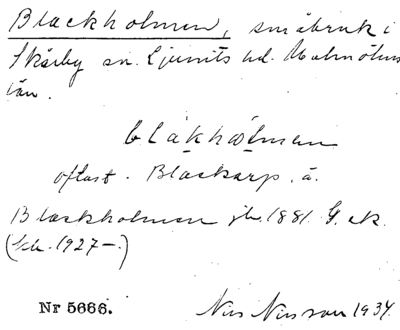 Blackholmen, småbruk i
Skårby sn. Ljunits hd. Malmöhus
län.
blakhålmen
oftast. Blackarp. å.
Blackholmen jb. 1881. G. ek.
(1927–.)
Nr 5666.
Nils Nilsson 1934.